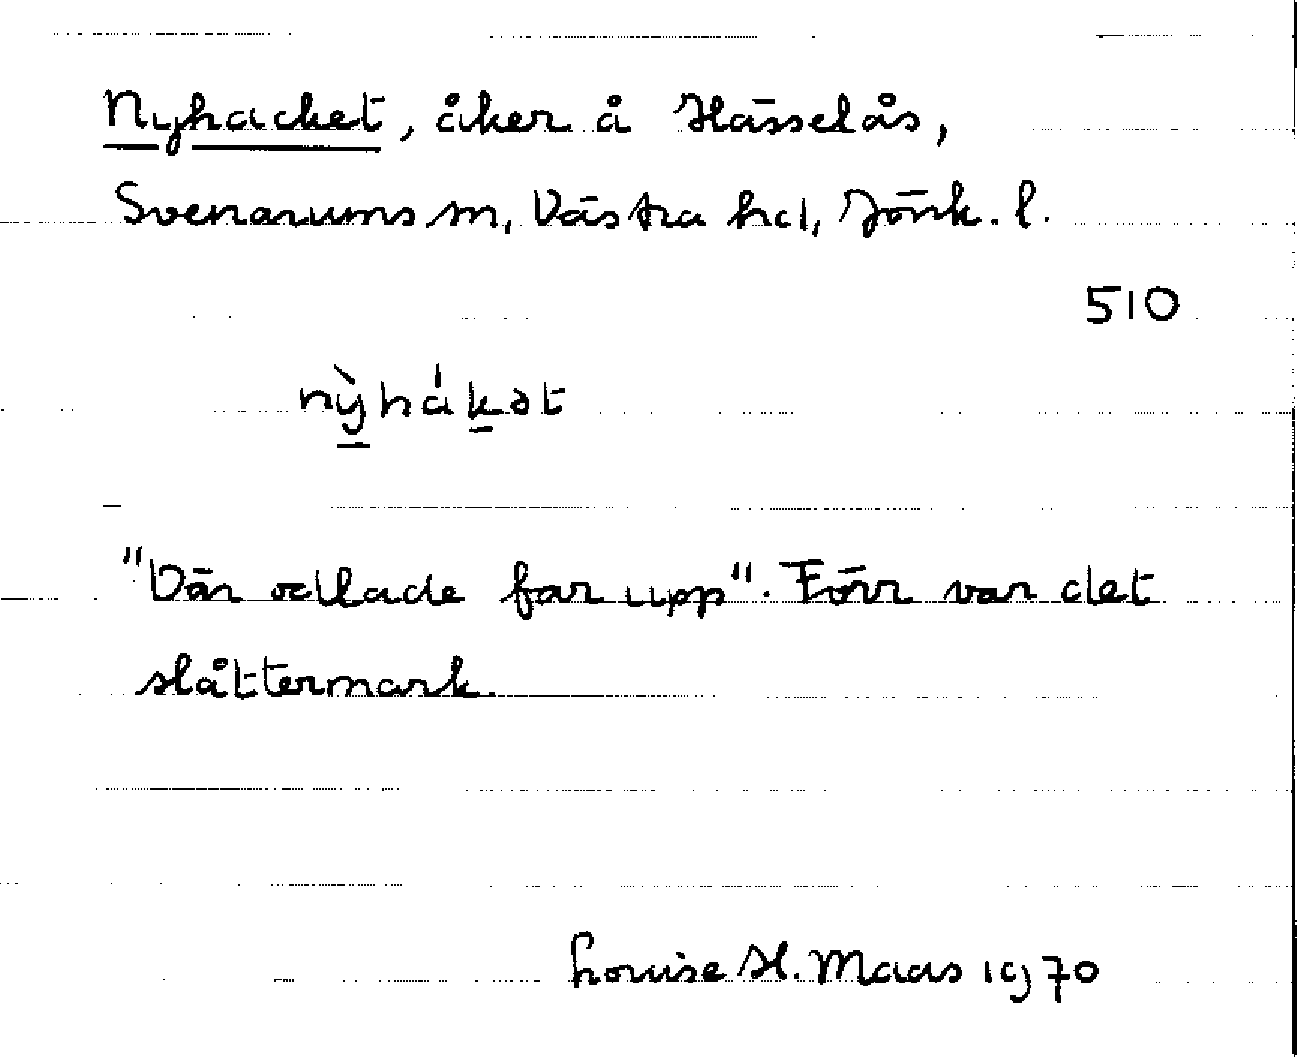 Nyhacket, åker å Hässelås,
Svenarums sn, Västra hd, Jönk. l.
510
nỳhákət
"Där odlade far upp". Förr var det
slåttermark.
Louise H. Maas 1970